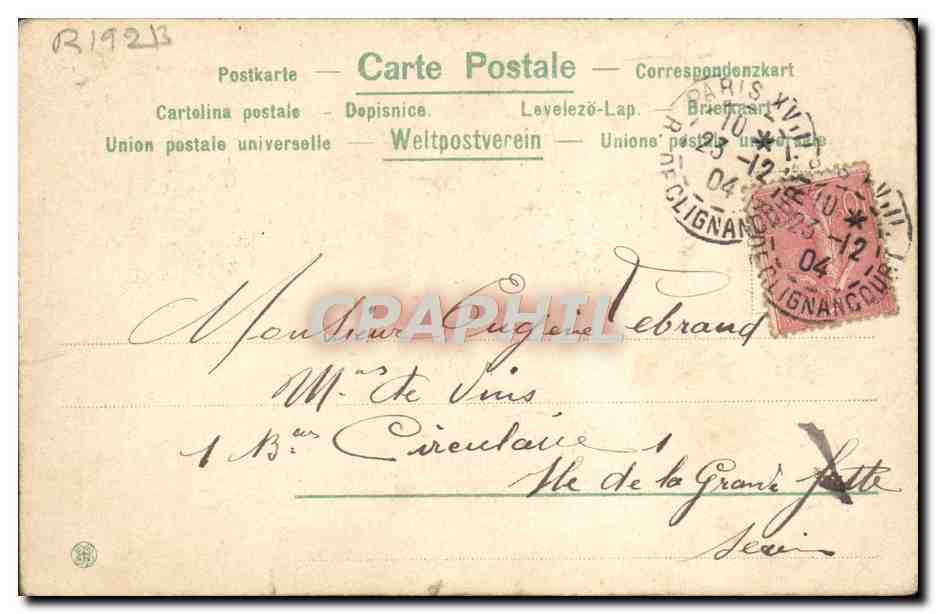 R192B
Postkarte — Carte Postale — Correspondenzkart
Cartolina postale - Dopisnice. Levelezö-Lap. - Briefkaart
Union postale universelle - Weltpostverein - Unione postale universale
PARIS XVIII
10 *
23 -12
04
R. DE CLIGNANCOURT
XVIII
10 *
23 -12
04
R. DE CLIGNANCOURT
10
CPAPHIL
Monsieur Eugène Lebrand
Mds de Vins
1 Bis Circulaire 1
Ile de la Grande Jatte
Seine